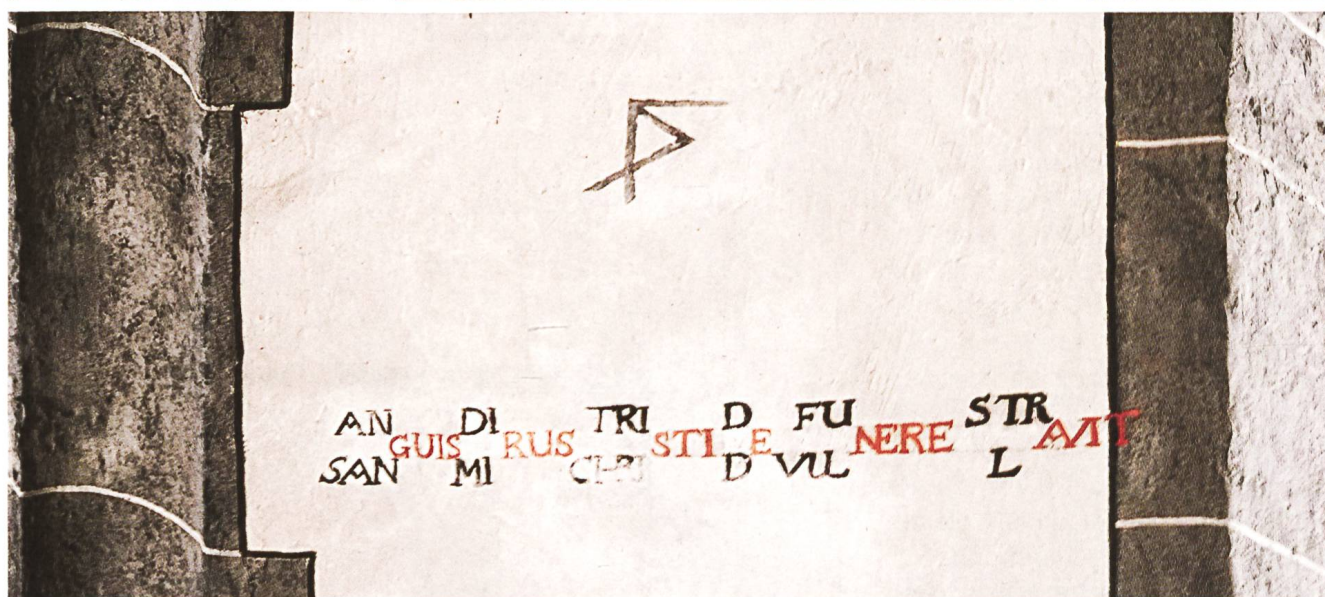 AN DI TRI D FU STR
GUIS RUS STI E NERE AVIT
SAN MI CHRI D VUL L